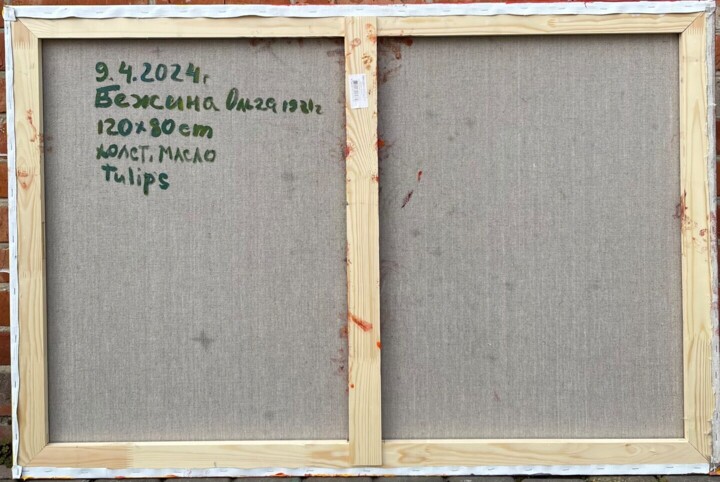 9.4.2024г
Бежина Ольга 1981г
120x80cm
холст, масло
Tulips